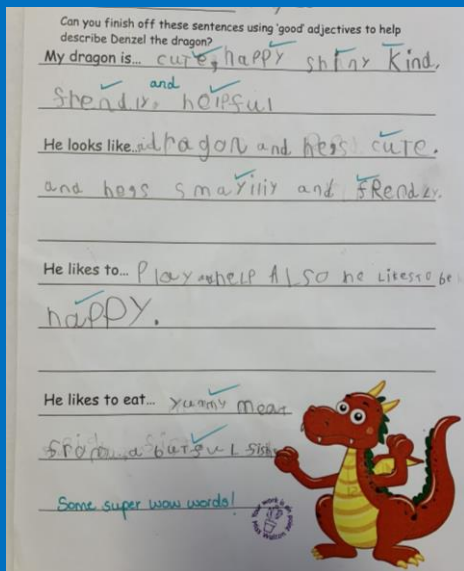 Can you finish off these sentences using 'good' adjectives to help
describe Denzel the dragon?
My dragon is... cute, happy shiny kind,
frendly, and helpful
He looks like... a dragon and hes cute.
and hes smayiliy and frendly.
He likes to... Play and help ALSO he Likes to be
happy.
He likes to eat... yummy meat
from a butful fish
Some super wow words!